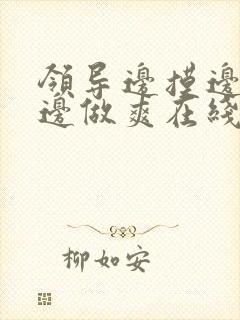 領导邊摸邊
邊做爽在綫
柳如安